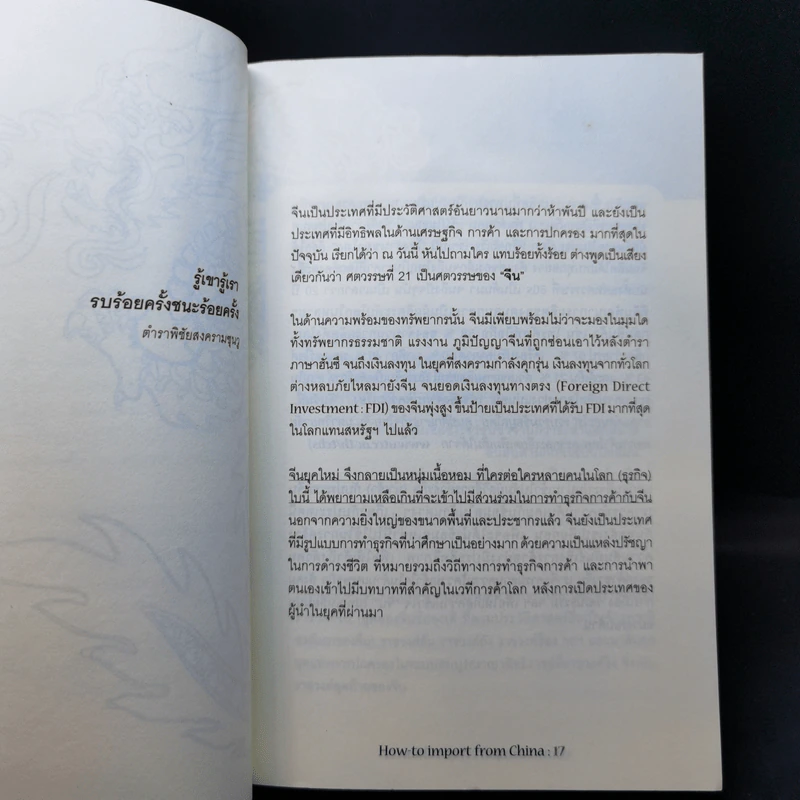 รู้เขารู้เรา
รบร้อยครั้งชนะร้อยครั้ง
ตำราพิชัยสงครามซุนวู
จีนเป็นประเทศที่มีประวัติศาสตร์อันยาวนานมากว่าห้าพันปี และยังเป็น
ประเทศที่มีอิทธิพลในด้านเศรษฐกิจ การค้า และการปกครอง มากที่สุดใน
ปัจจุบัน เรียกได้ว่า ณ วันนี้ หันไปถามใคร แทบร้อยทั้งร้อย ต่างพูดเป็นเสียง
เดียวกันว่า ศตวรรษที่ 21 เป็นศตวรรษของ "จีน"
ในด้านความพร้อมของทรัพยากรนั้น จีนมีเพียบพร้อมไม่ว่าจะมองในมุมใด
ทั้งทรัพยากรธรรมชาติ แรงงาน ภูมิปัญญาจีนที่ถูกซ่อนเอาไว้หลังตำรา
ภาษาฮั่นซี จนถึงเงินลงทุน ในยุคที่สงครามกำลังคุกรุ่น เงินลงทุนจากทั่วโลก
ต่างหลบภัยไหลมายังจีน จนยอดเงินลงทุนทางตรง (Foreign Direct
Investment : FDI) ของจีนพุ่งสูง ขึ้นป้ายเป็นประเทศที่ได้รับ FDI มากที่สุด
ในโลกแทนสหรัฐฯ ไปแล้ว
จีนยุคใหม่ จึงกลายเป็นหนุ่มเนื้อหอม ที่ใครต่อใครหลายคนในโลก (ธุรกิจ)
ใบนี้ ได้พยายามเหลือเกินที่จะเข้าไปมีส่วนร่วมในการทำธุรกิจการค้ากับจีน
นอกจากความยิ่งใหญ่ของขนาดพื้นที่และประชากรแล้ว จีนยังเป็นประเทศ
ที่มีรูปแบบการทำธุรกิจที่น่าศึกษาเป็นอย่างมาก ด้วยความเป็นแหล่งปรัชญา
ในการดำรงชีวิต ที่หมายรวมถึงวิถีทางการทำธุรกิจการค้า และการนำพา
ตนเองเข้าไปมีบทบาทที่สำคัญในเวทีการค้าโลก หลังการเปิดประเทศของ
ผู้นำในยุคที่ผ่านมา
How-to import from China : 17